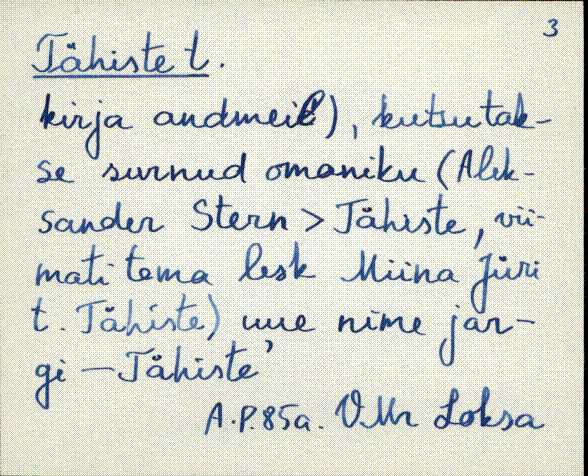 3
Tähiste t.
kirja andmeil), kutsutak-
se surnud omaniku (Alek-
sander Stern > Tähiste, vii-
mati tema lesk Miina Jüri
t. Tähiste) uue nime jär-
gi — Tähiste'
A.P. 85a. VMr Loksa